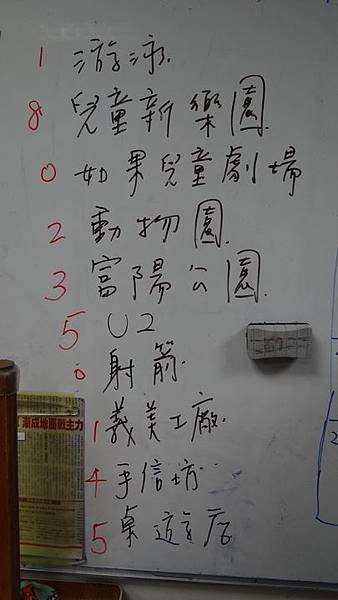 1 游泳.
8 兒童新樂園.
0 如果兒童劇場
2 動物園.
3 富陽公園.
5 U2
0 射箭.
1 義美工廠.
4 手信坊.
5 桌遊店
漸成地圖戰主力